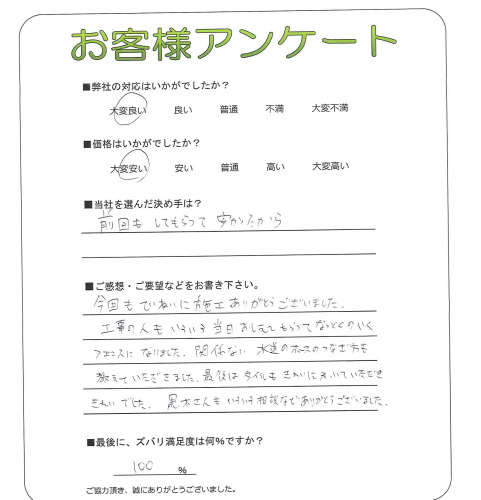 お客様アンケート
■弊社の対応はいかがでしたか？
大変良い 良い 普通 不満 大変不満
■価格はいかがでしたか？
大変安い 安い 普通 高い 大変高い
■当社を選んだ決め手は？
前回も してもらって 安かったから
■ご感想・ご要望などをお書き下さい。
今回も ていねいに施工ありがとうございました。
工事の人も いろいろ当日おしえてもらってなっとくのいく
フェンスに なりました。関係ない 水道のホースのつなぎ方も
教えていただきました。最後は タイルも きれいに ふいていただき
きれいでした。 黒木さんも いろいろ相談などありがとうございました。
■最後に、ズバリ満足度は何%ですか？
100 %
ご協力頂き、誠にありがとうございました。